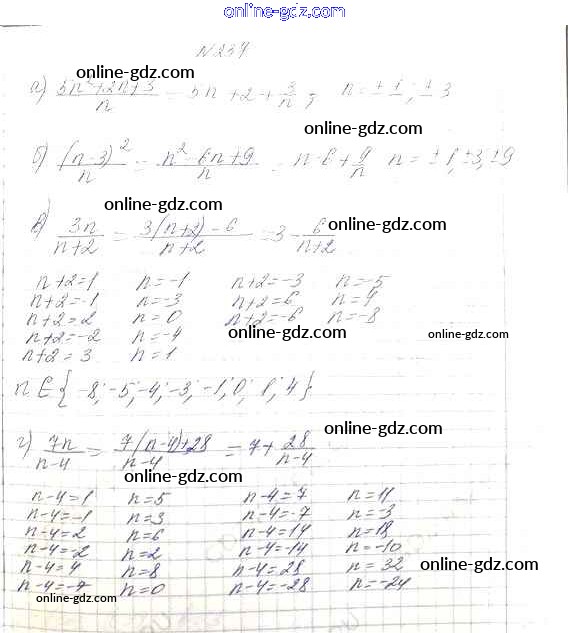 online-gdz.com
N 237
online-gdz.com
а) 5n²+2n+3/n = 5n+2+3/n; n=±1; ±3
online-gdz.com
б) (n-3)²/n = n²-6n+9/n = n-6+9/n n=±1,±3,±9
online-gdz.com
online-gdz.com
в) 3n/n+2 = 3(n+2)-6/n+2 = 3-6/n+2
n+2=1 n=-1 n+2=-3 n=-5
n+2=-1 n=-3 n+2=6 n=4
n+2=2 n=0 n+2=-6 n=-8
n+2=-2 n=-4 online-gdz.com online-gdz.com
n+2=3 n=1
n∈{-8; -5; -4; -3; -1; 0; 1; 4}
online-gdz.com
г) 7n/n-4 = 7(n-4)+28/n-4 = 7+28/n-4
online-gdz.com
n-4=1 n=5 n-4=7 n=11
n-4=-1 n=3 n-4=-7 n=-3
n-4=2 n=6 n-4=14 n=18
n-4=-2 n=2 n-4=-14 n=-10
n-4=4 n=8 n-4=28 n=32 online-gdz.com
n-4=-4 n=0 n-4=-28 n=-24
online-gdz.com
online-gdz.com